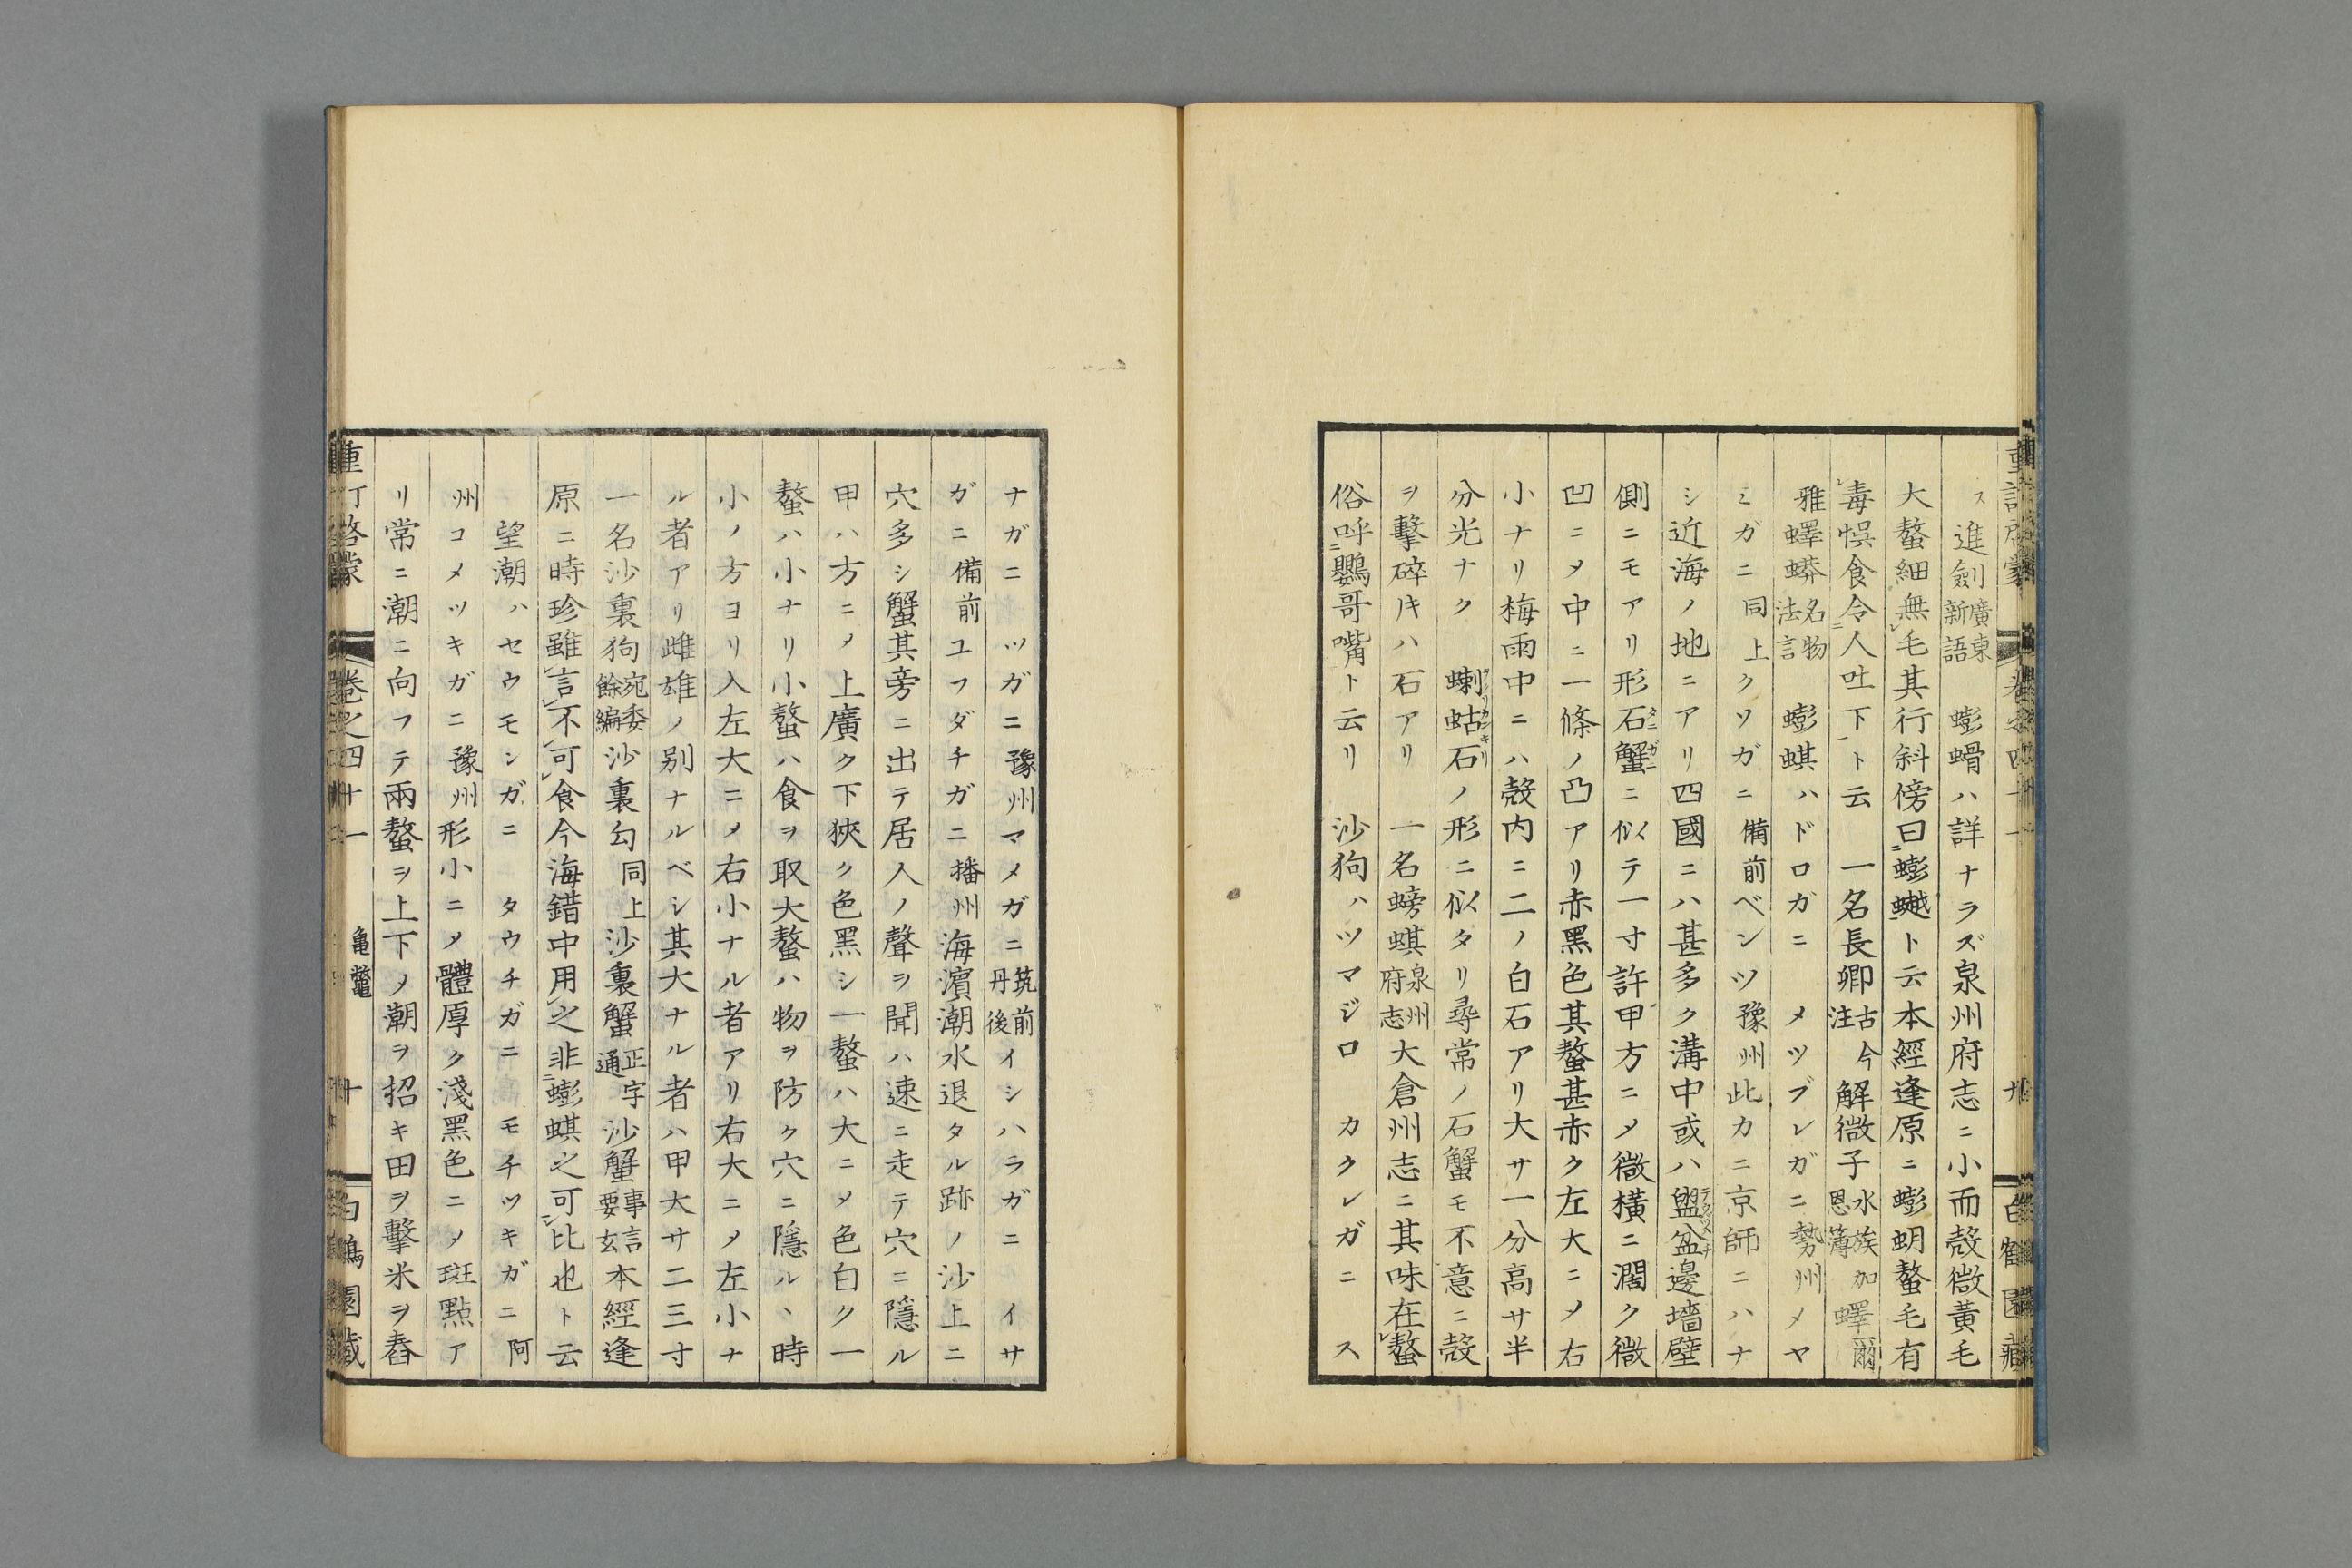 ス 進劍廣東新語 蟛螖ハ詳ナラズ泉州府志ニ小而殼微黃毛
大螯細無毛其行斜傍曰蟛䖣ト云本經逢原ニ蟛蜞螯毛有
毒悞食令人吐下ト云 一名長卿古今注 解微子水族加恩簿 蟚爾
雅蟚蟒名物法言 蟛蜞ハドロガニ メツブレガニ勢州メヤ
ミガニ同上クソガニ備前ベンツ豫州此カニ京師ニハナ
シ近海ノ地ニアリ四國ニハ甚多ク溝中或ハ盥盆邊墻壁
側ニモアリ形石蟹タニガニニ似テ一寸許甲方ニメ微橫ニ濶ク微
凹ニメ中ニ一條ノ凸アリ赤黑色其螯甚赤ク左大ニメ右
小ナリ梅雨中ニハ殼內ニ二ノ白石アリ大サ一分高サ半
分光ナク 蝲蛄石ノ形ニ似タリ尋常ノ石蟹モ不意ニ殼
ヲ擊碎キハ石アリ 一名螃蜞泉州府志大倉州志ニ其味在螯
俗呼鸚哥嘴ト云リ 沙狗ハツマジロ カクレガニ ス
ナガニ ツガニ豫州マメガニ筑前丹後イシハラガニ イサ
ガニ備前ユフダチガニ播州海濵潮水退タル跡ノ沙上ニ
穴多シ蟹其旁ニ出テ居人ノ聲ヲ聞ハ速ニ走テ穴ニ隱ル
甲ハ方ニメ上廣ク下狹ク色黑シ一螯ハ大ニメ色白ク一
螯ハ小ナリ小螯ハ食ヲ取大螯ハ物ヲ防ク穴ニ隱ルヽ時
小ノ方ヨリ入左大ニメ右小ナル者アリ右大ニメ左小ナ
ル者アリ雌雄ノ別ナルベシ其大ナル者ハ甲大サ二三寸
一名沙裏狗宛委餘編沙裏勾同上沙裏蟹正字通沙蟹事言要玄本經逢
原ニ時珍雖言不可食今海錯中用之非蟛蜞之可比也ト云
望潮ハセウモシガニ タウチガニ モチツキガニ阿
州コメツキガニ豫州形小ニメ體厚ク淺黑色ニメ斑點ア
リ常ニ潮ニ向フテ兩螯ヲ上下メ潮ヲ招キ田ヲ擊米ヲ舂
卷之四十一 龜鼈 十